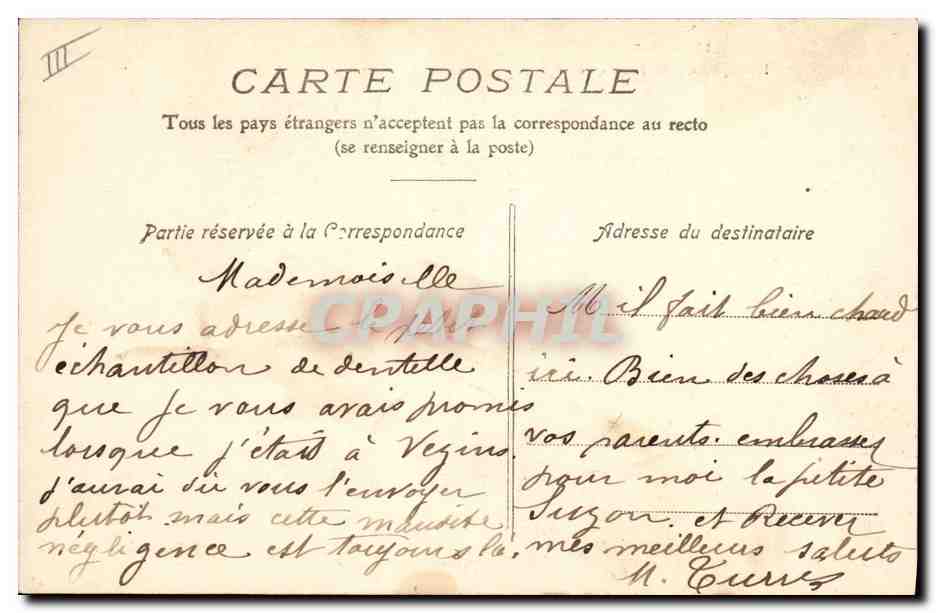 III
CARTE POSTALE
Tous les pays étrangers n'acceptent pas la correspondance au recto
(se renseigner à la poste)
Partie réservée à la Correspondance
Mademoiselle
Je vous adresse le petit
échantillon de dentelle
que Je vous avais promis
lorsque j'étais à Vezins.
j'aurai dû vous l'envoyer
plutôt. mais cette maudite
négligence est toujours là.
Adresse du destinataire
il fait bien chaud
ici. Bien des choses à
vos parents. embrassez
pour moi la petite
Suzon. et Recevez
mes meilleurs saluts
M.
CPAPHIL